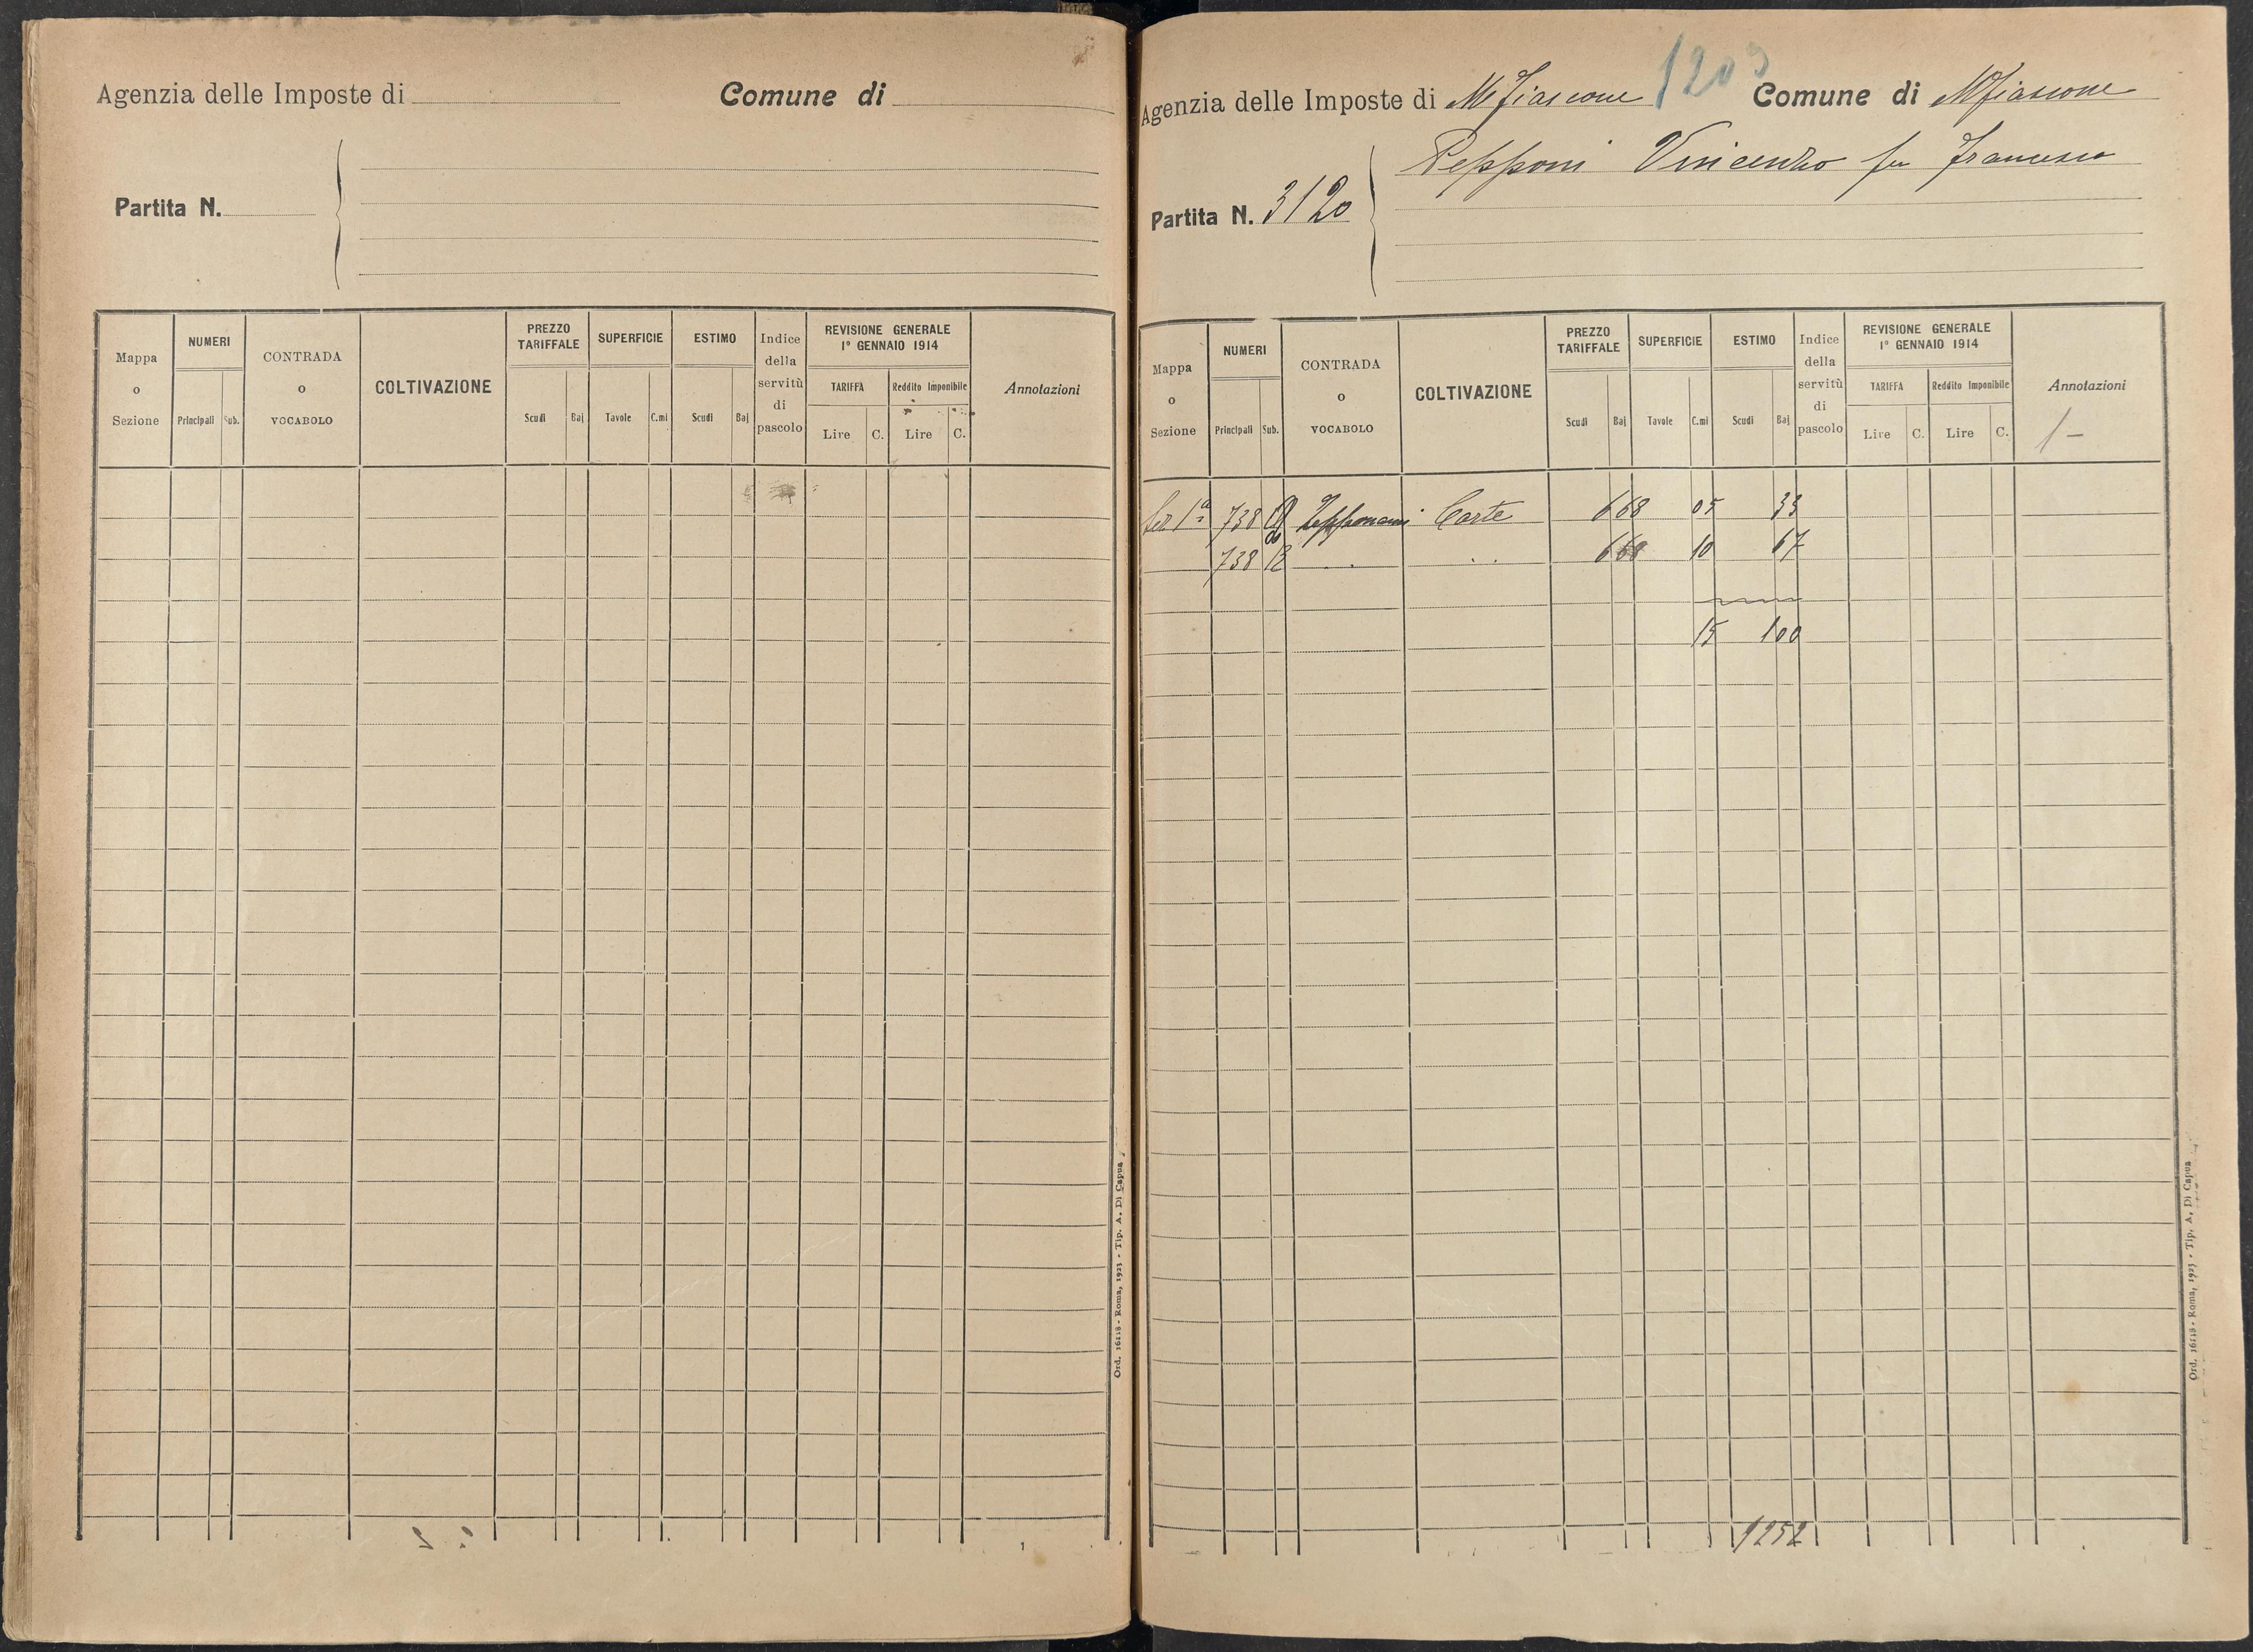 Agenzia delle Imposte di
Comune di
Partita N.
Mappa o Sezione
NUMERI
Principali Sub.
CONTRADA o VOCABOLO
COLTIVAZIONE
PREZZO TARIFFALE
Scudi Baj
SUPERFICIE
Tavole C.mi
ESTIMO
Scudi Baj
Indice della servitù di pascolo
REVISIONE GENERALE
1° GENNAIO 1914
TARIFFA Reddito Imponibile
Lire C. Lire C.
Annotazioni
Ord. 16118 - Roma, 1923 - Tip. A. Di Capua
1203
Agenzia delle Imposte di Mfiascone Comune di Mfiascone
Pepponi Vincenzo fu Francesco
Partita N. 3120
Mappa o Sezione
NUMERI
Principali Sub.
CONTRADA o VOCABOLO
COLTIVAZIONE
PREZZO TARIFFALE
Scudi Baj
SUPERFICIE
Tavole C.mi
ESTIMO
Scudi Baj
Indice della servitù di pascolo
REVISIONE GENERALE
1° GENNAIO 1914
TARIFFA Reddito Imponibile
Lire C. Lire C.
Annotazioni
1 -
1ª 738 Zepponami Corte 668 05 33
738 668 10 67
15 100
1252
Ord. 16118 - Roma, 1923 - Tip. A. Di Capua